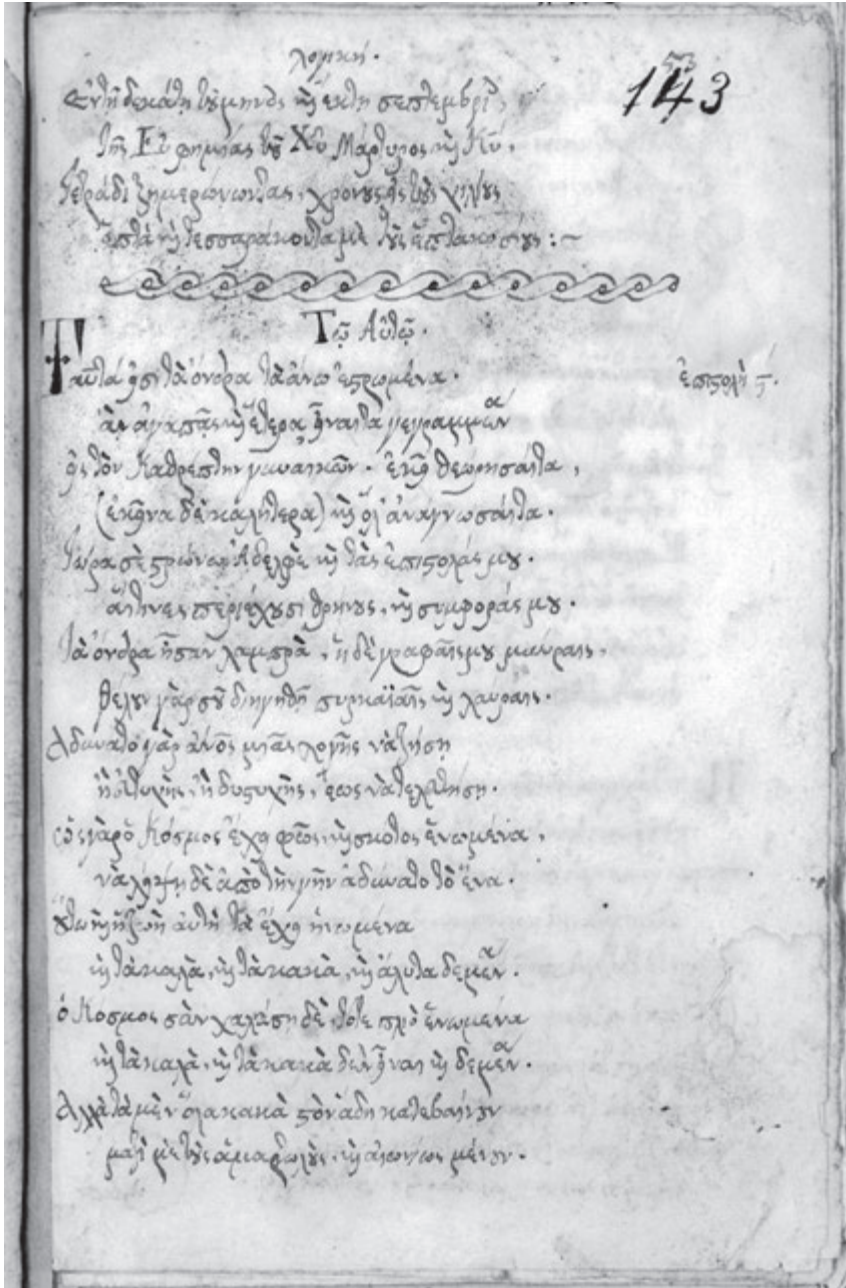 λογική.
143
Ἐν τῇ δεκάτῃ τοῦ μηνὸς καὶ ἕκτῃ σεπτεμβρίου,
τῆς Εὐφημίας τοῦ Χῦ Μάρτυρος καὶ Κῦ.
τετράδι ξημερώνωντας, χρόνους εἰς τοὺς χιλίους
ἑπτὰ καὶ τεσσαράκοντα μὲ τοὺς ἑπτακοσίους :~
Τῷ Αὐτῷ.
Ταῦτά εἰσι τὰ ὄνειρα τὰ ἄνω
ἐπιστολὴ ς΄.
ἂν ἀγαπᾷς καὶ ἕτερα εἶναι τὰ γεγραμμένα
εἰς τὸν Καθρέπτην γυναικῶν ἐκεῖ θεωρησάτα,
(ἐκεῖνα δὲ καλήτερα) καὶ ἀναγνωσάτα.
τώρα σὲ Ἀδελφὲ καὶ τὰς ἐπιστολάς μου.
αἵτινες περιέχουσι θρήνους, καὶ συμφοράς μου.
Τὰ ὄνειρα ἦσαν λαμπρὰ, ἡ δὲ γραφαῖς μου μαύραις.
θέλουν γὰρ σοῦ διηγηθῆ πυρκαϊαῖς καὶ λαύραις.
Ἀδύνατο γὰρ ἄνος μιᾶς λογῆς νὰ ζήσῃ
ἢ ἀτυχὴς, ἢ δυστυχὴς, ἕως νὰ τελευτήσῃ.
ὡς γὰρ ὁ Κόσμος ἔχει φῶς, καὶ σκότος ἑνωμένα,
νὰ λείψῃ δὲ ἀπὸ τὴν γῆν ἀδύνατο τὸ ἕνα.
οὕτω καὶ ἡ ζωὴ αὐτὴ τὰ ἔχει ἡνωμένα
καὶ τὰ καλὰ, καὶ τὰ κακὰ, καὶ ἄλυτα δεμένα.
ὁ Κόσμος σὰν χαλάσῃ δὲ, τότε ἑνωμένα
καὶ τὰ καλὰ, καὶ τὰ κακὰ δὲν εἶναι καὶ δεμένα.
Ἀλλὰ τὰ μὲν ὅλα κακὰ στὸν ἅδη κατεβαίνουν
μαζὶ μὲ τοὺς ἁμαρτωλοὺς, καὶ αἰωνίως μένουν.